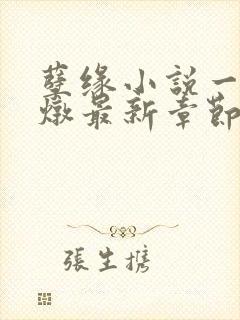 孽缘小説一
燉最新章節
張生携